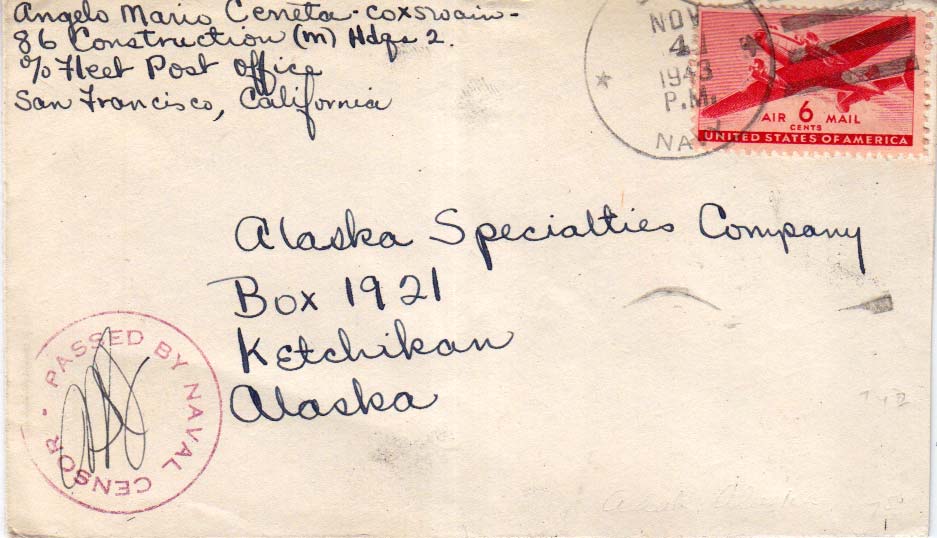 Angelo Mario Ceneta - coxswain -
86 Construction (m) Hdqs 2.
c/o Fleet Post Office
San Francisco, California
NOV
4
1943
P.M.
NAVY
AIR 6 MAIL
CENTS
UNITED STATES OF AMERICA
Alaska Specialties Company
Box 1921
Ketchikan
Alaska
PASSED BY NAVAL CENSOR